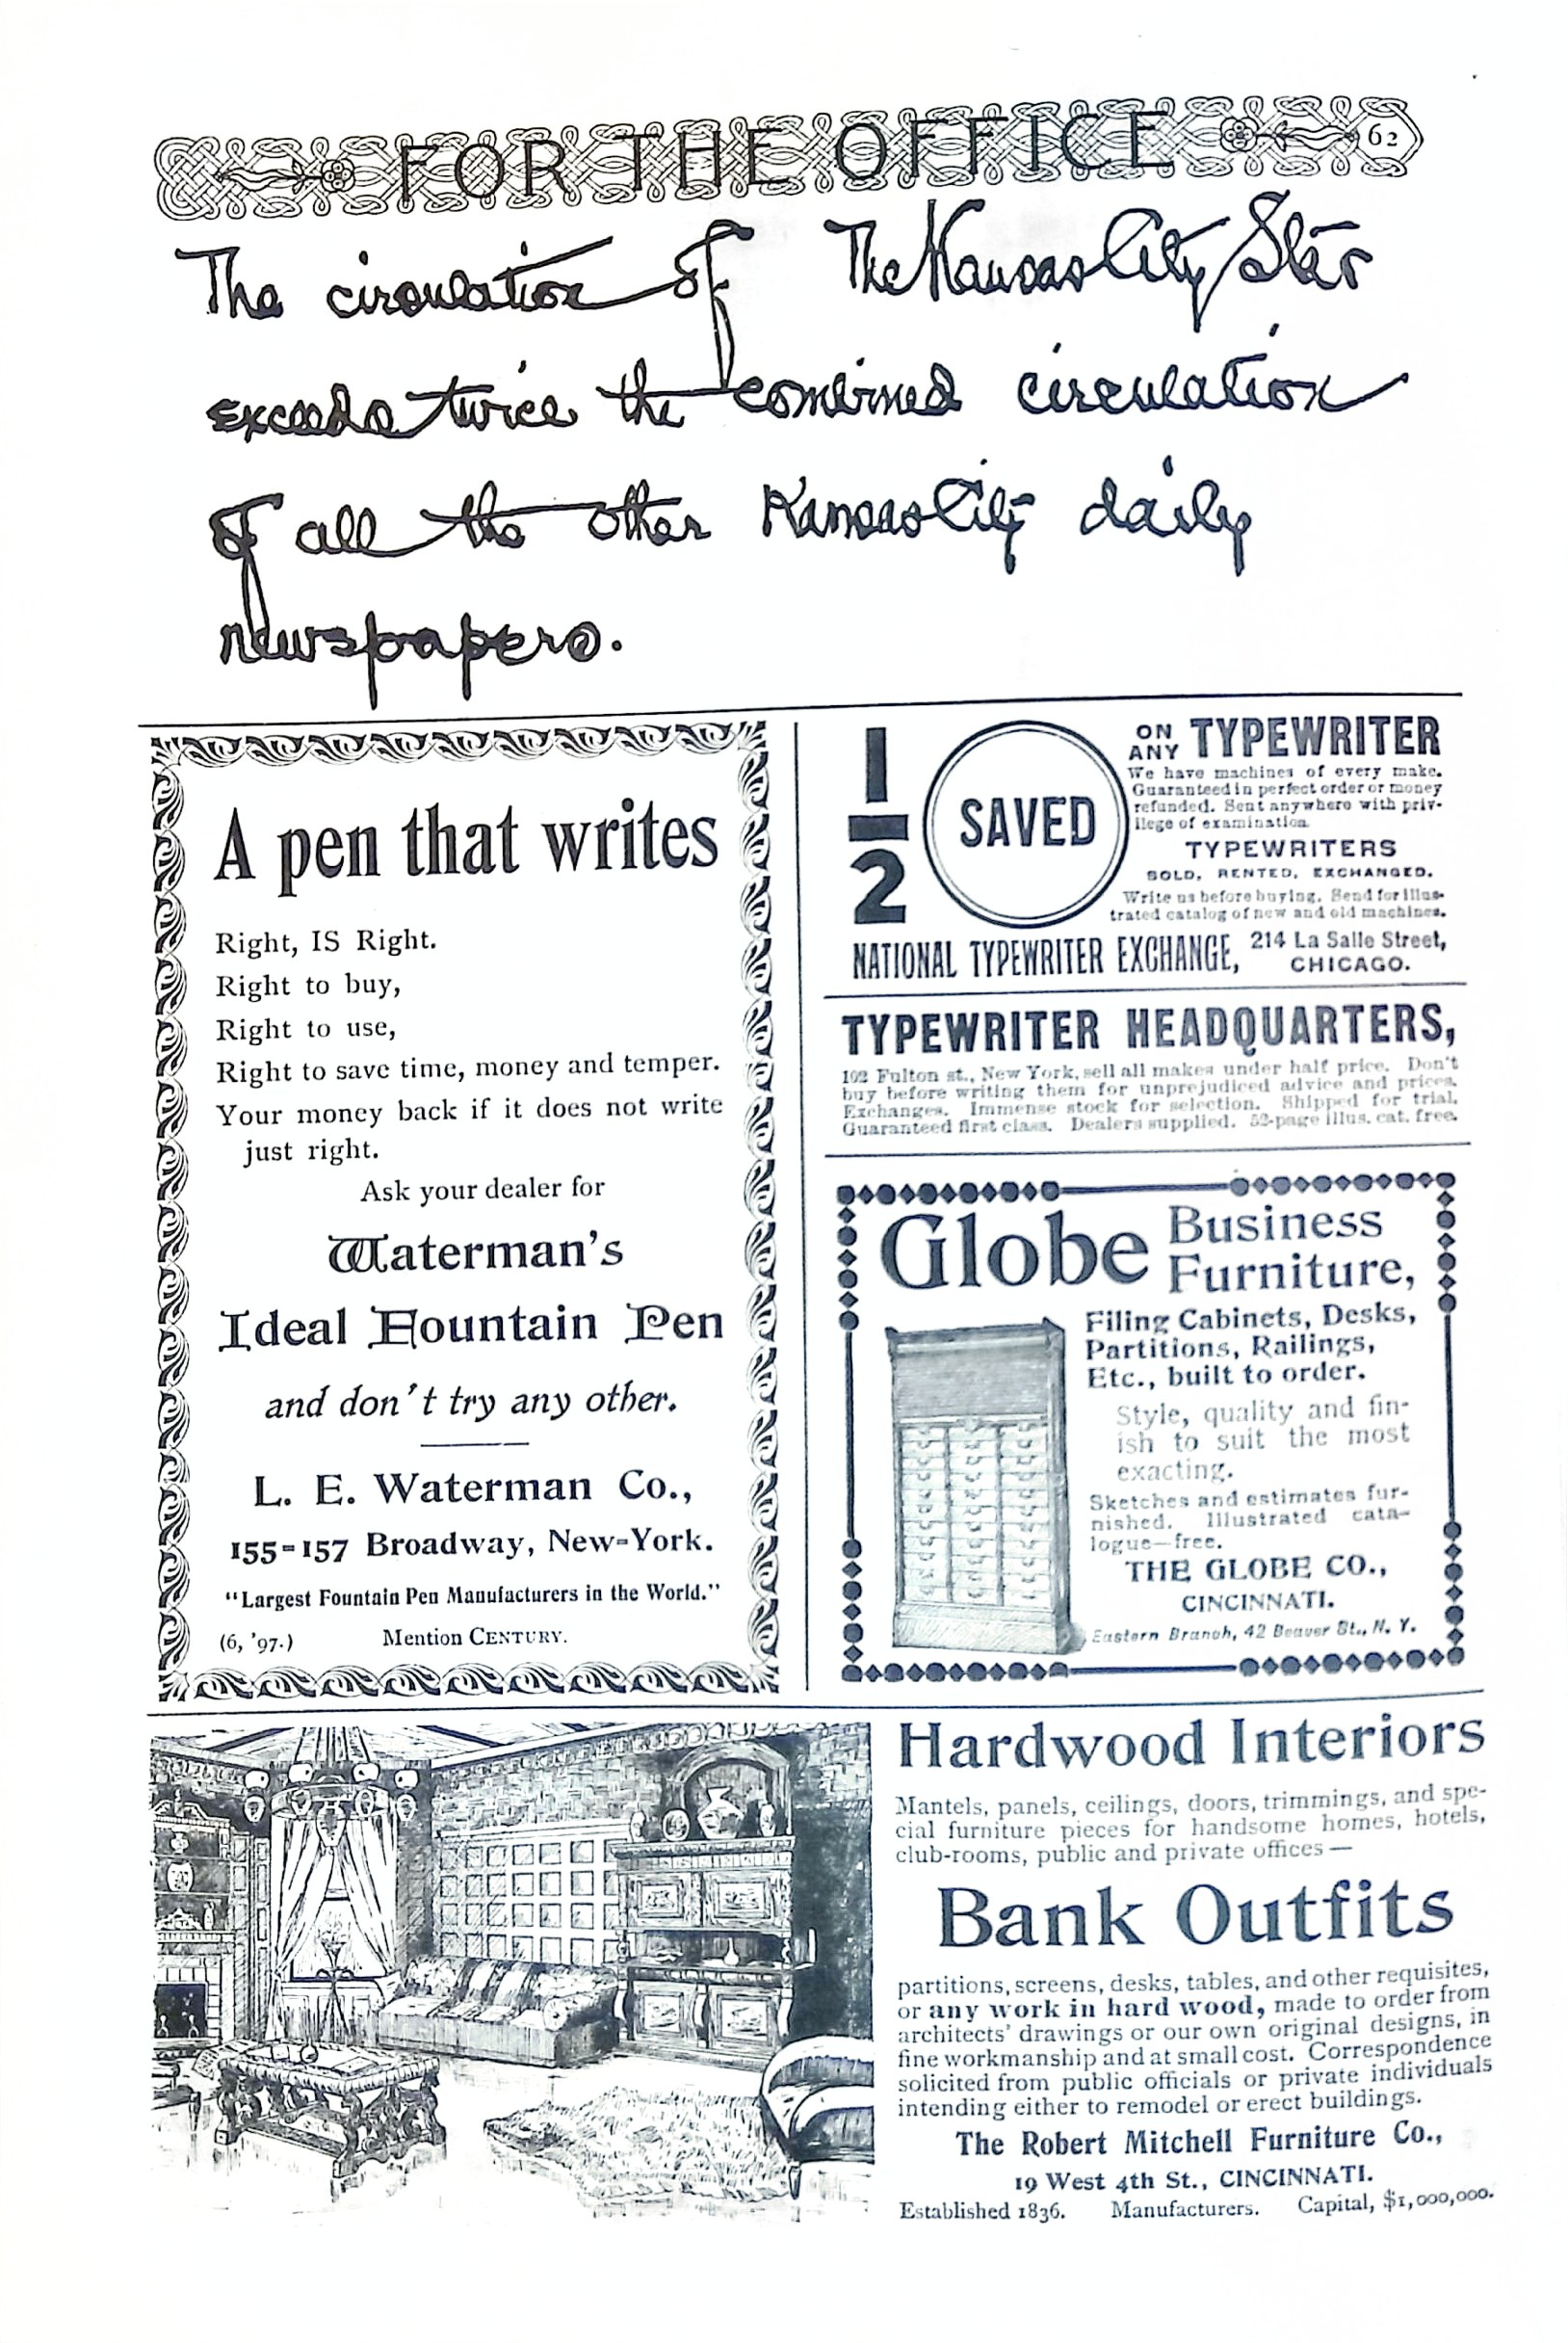 FOR THE OFFICE
62
The circulation of The Kansas City Star
exceeds twice the combined circulation
of all the other Kansas City daily
newspapers.
A pen that writes
Right, IS Right.
Right to buy,
Right to use,
Right to save time, money and temper.
Your money back if it does not write
just right.
Ask your dealer for
Waterman's
Ideal Fountain Pen
and don't try any other.
L. E. Waterman Co.,
155-157 Broadway, New-York.
"Largest Fountain Pen Manufacturers in the World."
(6, '97.) Mention CENTURY.
1/2 SAVED
ON ANY TYPEWRITER
We have machines of every make.
Guaranteed in perfect order or money
refunded. Sent anywhere with priv-
ilege of examination.
TYPEWRITERS
SOLD, RENTED, EXCHANGED.
Write us before buying. Send for illus-
trated catalog of new and old machines.
NATIONAL TYPEWRITER EXCHANGE, 214 La Salle Street,
CHICAGO.
TYPEWRITER HEADQUARTERS,
102 Fulton st., New York, sell all makes under half price. Don't
buy before writing them for unprejudiced advice and prices.
Exchanges. Immense stock for selection. Shipped for trial.
Guaranteed first class. Dealers supplied. 52-page illus. cat. free.
Globe Business
Furniture,
Filing Cabinets, Desks,
Partitions, Railings,
Etc., built to order.
Style, quality and fin-
ish to suit the most
exacting.
Sketches and estimates fur-
nished. Illustrated cata-
logue—free.
THE GLOBE CO.,
CINCINNATI.
Eastern Branch, 42 Beaver St., N. Y.
Hardwood Interiors
Mantels, panels, ceilings, doors, trimmings, and spe-
cial furniture pieces for handsome homes, hotels,
club-rooms, public and private offices —
Bank Outfits
partitions, screens, desks, tables, and other requisites,
or any work in hard wood, made to order from
architects' drawings or our own original designs, in
fine workmanship and at small cost. Correspondence
solicited from public officials or private individuals
intending either to remodel or erect buildings.
The Robert Mitchell Furniture Co.,
19 West 4th St., CINCINNATI.
Established 1836. Manufacturers. Capital, $1,000,000.